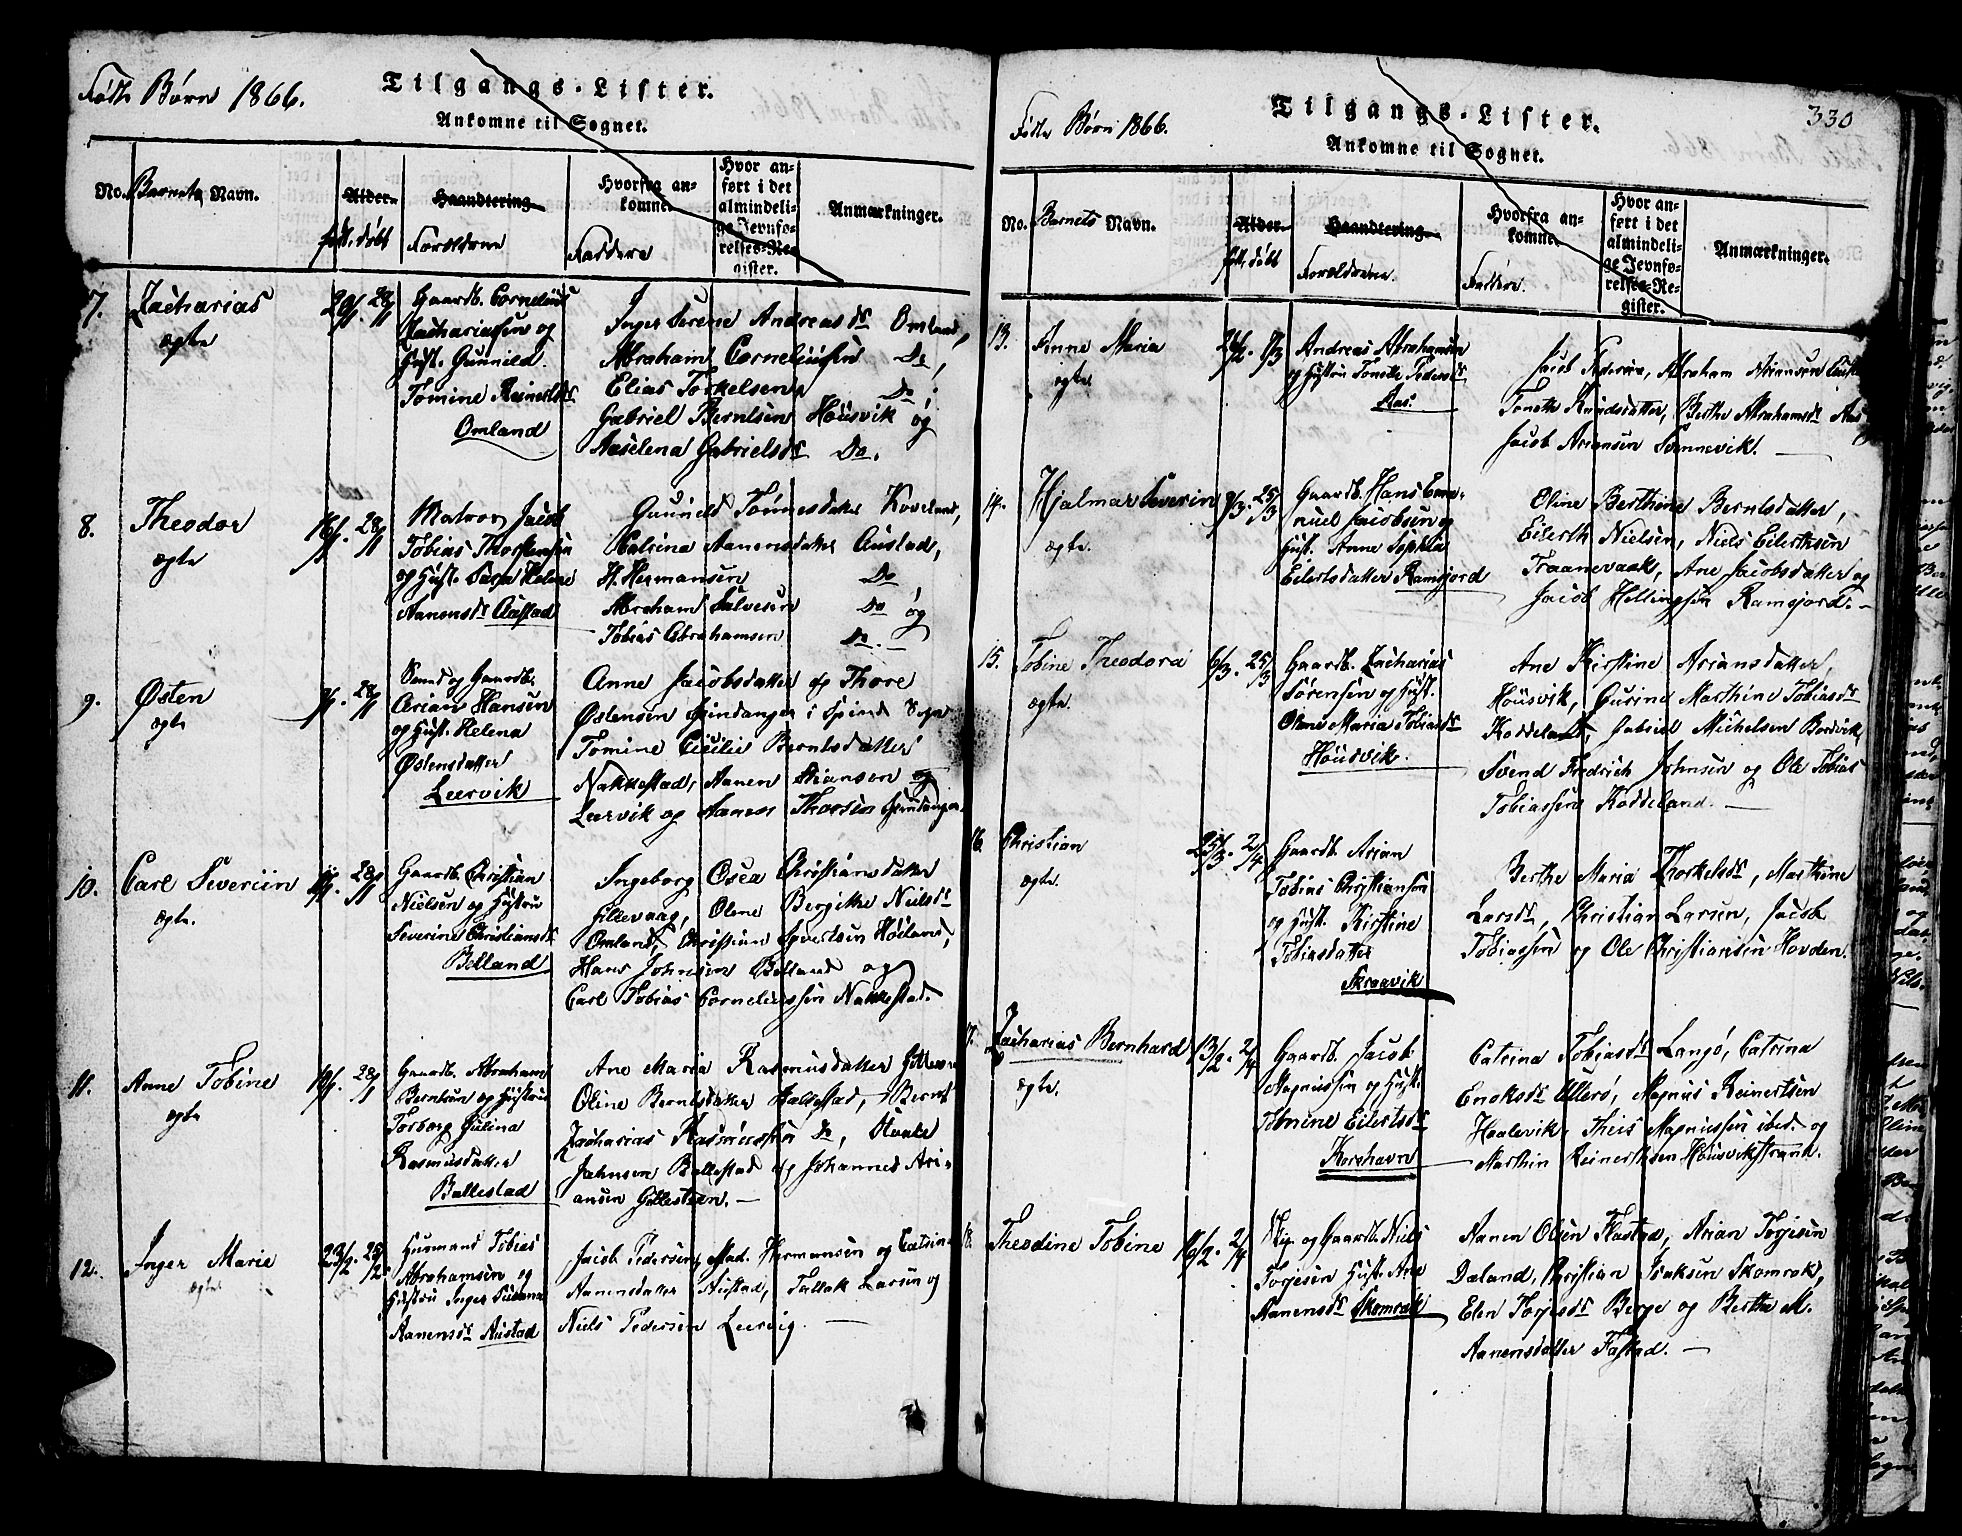 Födte Børn 1866.
Tilgangs-Lister.
Ankomne til Sognet.
No.
Barnets Navn.
Alder.
født, döbt
Haandtering
Forældrene
Hvorfra an-
komne.
Faddere
Hvor an-
ført i det
almindeli-
ge Jevnfø-
relses-Re-
gister.
Anmærkninger.
7.
Zacharias
ægte
28/1
Gaardb. Cornelius
Zachariassen og
Hust. Gunnild
Tomine Reinertsdr
Omland
Inger Serene Andreasdr Omland,
Abraham Corneliusen Do,
Elias Torkelsen Do,
Gabriel Berntsen Housvik og
Aaselena Gabrielsdr Do.
8.
Theodor
ægte
16/1. 28/1
Matros Jacob
Tobias Thorkensen
og Hust. Helene
Aanensdr Austad
Gunild Tönnesdatter
Catrina Aanensdatter Austad,
H. Hermansen Do
Abraham Salvesen Do og
Tobias Abrahamsen Do.
9.
Østen
ægte
28/1
og Gaardb.
Arian Hansen
og Hust. Helena
Østensdatter
Leervik
Anne Jacobsdatter og Thore
Østensen Spindanger i Spind Sogn
Tomine Cicilie Berntsdatter
Nakkestad, Aanen Stiansen og
Leervik og Aanen Thorsen Spindanger
10.
Carl Severiin
ægte.
28/1
Gaardb. Christian
Nielsen og Hustru
Severine Christiansdr
Belland
Ingeborg Osea Christiansdatter
Gillevaag, Olene Bergitte Nielsdr
Omland, Christian Sivertsen Höiland,
Hans Johnsen Belland og
Carl Tobias Corneliussen Nakkestad.
11.
Anne Tobine
ægte
28/1
Gaardb. Abraham
Berntsen og Hustru
Torborg Gulina
Rasmusdatter
Ballestad
Ane Maria Rasmusdatter
Oline Berntsdatter Ballestad, Bernt
Zacharias Rasmussen Do,
Johnsen Ballestad og Johannes Ari-
ansen Gillesteen.
12.
Inger Marie
ægte
23/2. 25/2
Husmand Tobias
Abrahamsen og
Hustru Inger Susanna
Aanensdr Austad
Jacob Pedersen, Mad. Hermansen og Catrine
Aanensdatter Austad, Tallak Larsen og
Niels Pedersen Leervig.
Födte Börn 1866.
Tilgangs-Lister.
330
Ankomne til Sognet.
No.
Barnets Navn.
Alder.
født, döbt
Haandtering
Forældrene.
Hvorfra an-
komne.
Faddere.
Hvor an-
ført i det
almindeli-
ge Jevnfø-
relses-Re-
gister.
Anmærkninger.
13.
Anne Maria
ægte.
Andreas Abrahamsen
og Hustru Tonette Pedersdr
Aas.
Jacob Pedersen, Abraham Arianssen
Tonette Knudsdatter, Berthe Abrahamsdr Aas
Jacob Ariansen Sonnevik.
14.
Hjalmar Severin
ægte.
9/3. 25/3
Gaardb. Hans Ema-
nuel Jacobsen og
Hust. Anne Sophia
Eilertsdatter Ramsjord
Oline Berthine Berntsdatter,
Eilerth Nielsen, Niels Eilerthsen
Traanevaak, Ane Jacobsdatter og
Jacob Hellingsen Ramsjord.
15.
Tobine Theodora
ægte.
6/3. 25/3
Gaardb. Zacharias
Sörensen og Hust.
Olene Maria Tobiasdr
Housvik.
Ane Kirstine Ariansdatter,
Housvik, Gurine Marthine Tobiasdr
Koddeland, Gabriel Michelsen Bordvik,
Svend Fredrich Johnsen og Ole Tobias
Tobiassen Koddeland.
16.
Christian
ægte.
25/3. 2/4
Gaardb. Arian
Tobias Christiansen
og Hust. Kirstine
Tobiasdatter
Skraavik
Berthe Maria Thorkelsdr, Marthine
Larsdr, Christian Larsen, Jacob
Tobiassen og Ole Christiansen Hovden.
17.
Zacharias Bernhard
ægte.
13/2. 2/4
Gaardb. Jacob
Magnussen og Hust.
Tomine Eilertsdr
Korshavn
Catrina Tobiasdr Langö, Catrina
Enoksdr Ullerö, Magnus Reinertsen
Haalevik, Theis Magnussen ibed. og
Marthin Reinerthsen Housvikstrand.
18.
Theodine Tobine
16/2. 2/4
og Gaardb. Niels
Torjesen Hust. Ane
Aanensdr Skomrak
Aanen Olsen Fastad, Arian Torjesen
Daland, Christian Isaksen Skomrak,
Elen Torjesdr Berge og Berthe M.
Aanensdatter Fastad.